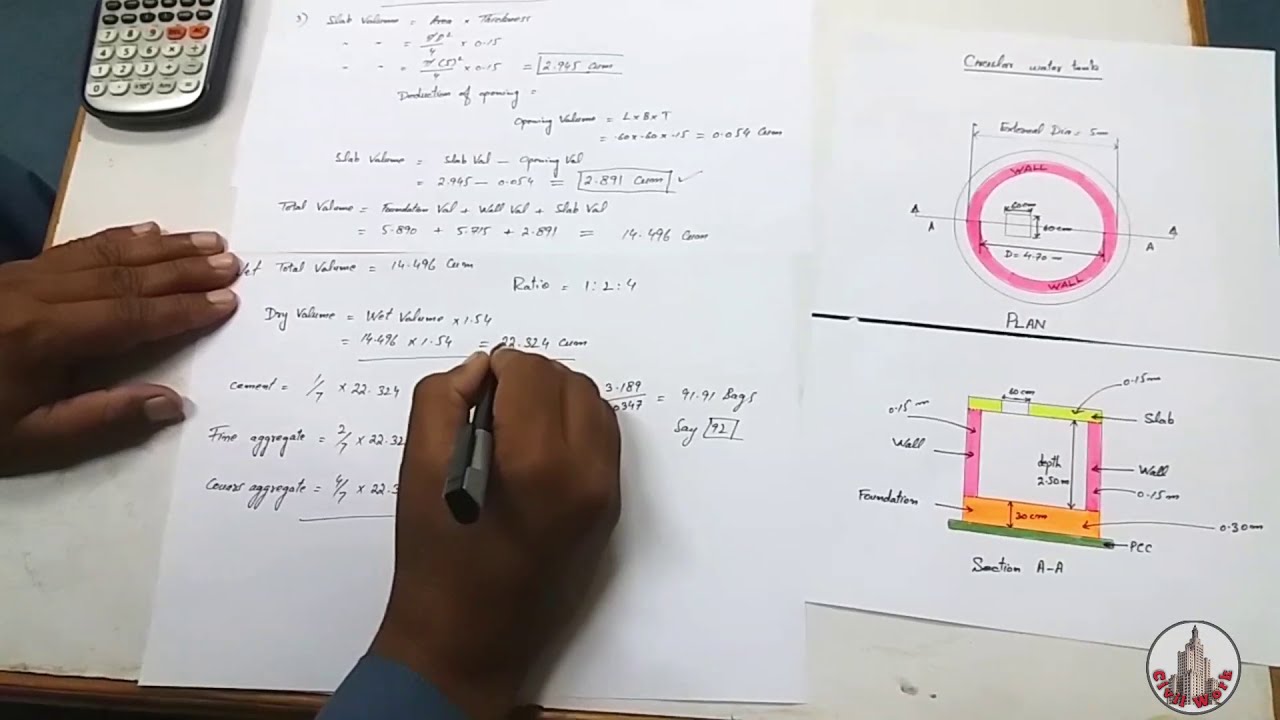 3) Slab Volume = Area × Thickness
" " = πD²/4 × 0.15
" " = π(5)²/4 × 0.15 = 2.945 Cum
Deduction of opening =
Opening Volume = L×B×T
= .60×.60×.15 = 0.054 Cum
Slab Volume = Slab Vol – Opening Vol
= 2.945 – 0.054 = 2.891 Cum ✓
Total Volume = Foundation Vol + Wall Vol + Slab Vol
= 5.890 + 5.715 + 2.891 = 14.496 Cum
Wet Total Volume = 14.496 Cum
Ratio = 1:2:4
Dry Volume = Wet Volume × 1.54
= 14.496 × 1.54 = 22.324 Cum
cement = 1/7 × 22.324
3.189
0347 = 91.91 Bags
Say 92
Fine aggregate = 2/7 × 22.32
Couars aggregate = 4/7 × 22.3
Circular water tank
External Dia = 5m
WALL
60cm
60cm
A
A
D = 4.70 m
WALL
PLAN
60cm
0.15m
0.15m
Slab
Wall
depth
2.50m
Wall
0.15m
Foundation
30cm
0.30m
PCC
Section A-A
Civil Work